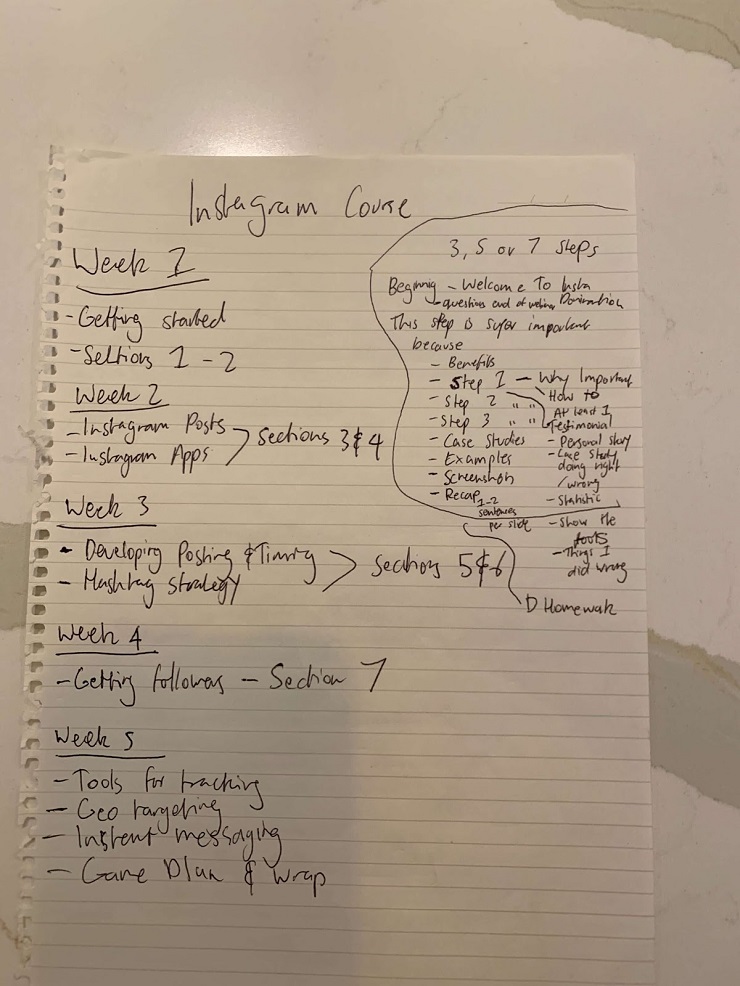 Instagram Course
Week 1
- Getting started
- Sections 1 - 2
Week 2
- Instagram Posts
- Instagram Apps
Sections 3 & 4
Week 3
- Developing Posting & Timing
- Hashtag strategy
Sections 5 & 6
Week 4
- Getting followers - Section 7
Week 5
- Tools for tracking
- Geo targeting
- Instent messaging
- Game Plan & Wrap
3, 5 or 7 steps
Beginnig - Welcome To Insta
Domination
- questions end of webinar
This step is super important
because
- Benefits
- Step 1 - Why Important
- Step 2 " "
- Step 3 " "
- Case Studies
- Examples
- Screenshots
- Recap
1-2
sentences
per slide
How to
At least 1
Testimonial
- Personal story
- Case study
doing right
/wrong
- Statistic
- Show the
tools
- Things I
did wrong
Homework